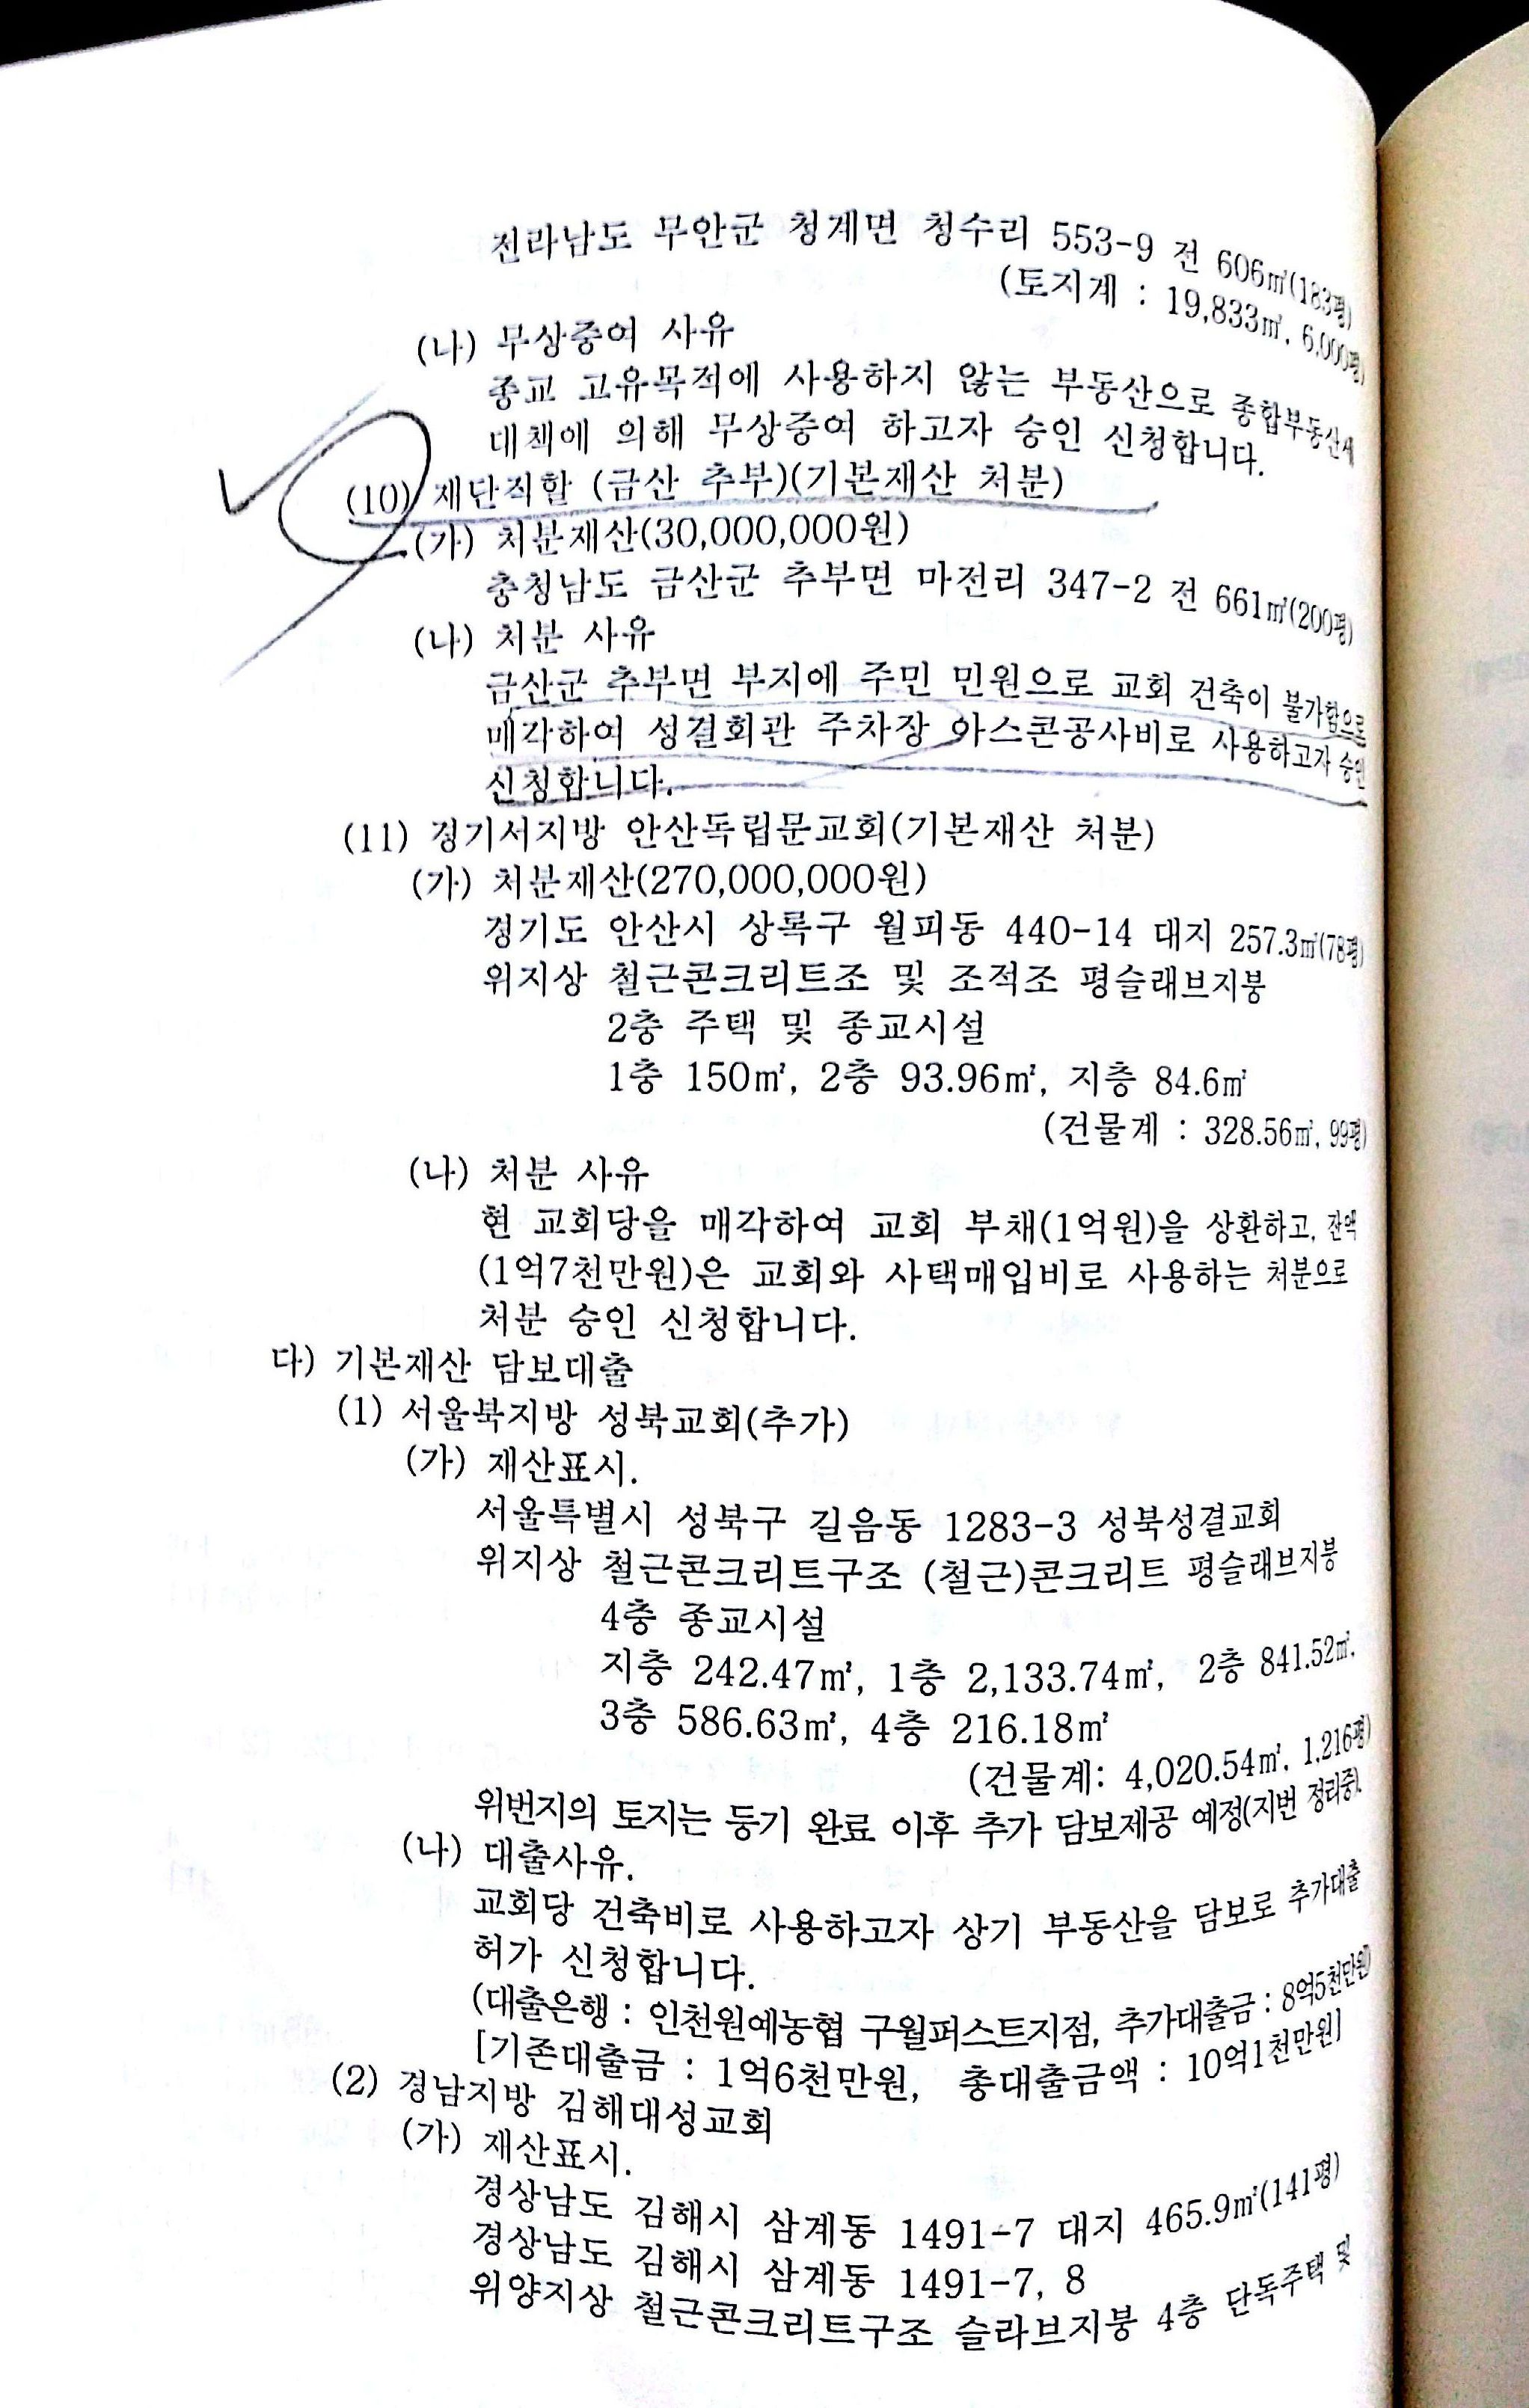 전라남도 무안군 청계면 청수리 553-9 전 606㎡(183평)
(토지계 : 19,833㎡, 6,000평)
(나) 무상증여 사유
종교 고유목적에 사용하지 않는 부동산으로 종합부동산세
대책에 의해 무상증여 하고자 승인 신청합니다.
(10) 재단직할 (금산 추부)(기본재산 처분)
(가) 처분재산(30,000,000원)
충청남도 금산군 추부면 마전리 347-2 전 661㎡(200평)
(나) 처분 사유
금산군 추부면 부지에 주민 민원으로 교회 건축이 불가함으로
매각하여 성결회관 주차장 아스콘공사비로 사용하고자 승인
신청합니다.
(11) 경기서지방 안산독립문교회(기본재산 처분)
(가) 처분재산(270,000,000원)
경기도 안산시 상록구 월피동 440-14 대지 257.3㎡(78평)
위지상 철근콘크리트조 및 조적조 평슬래브지붕
2층 주택 및 종교시설
1층 150㎡, 2층 93.96㎡, 지층 84.6㎡
(건물계 : 328.56㎡, 99평)
(나) 처분 사유
현 교회당을 매각하여 교회 부채(1억원)을 상환하고, 잔액
(1억7천만원)은 교회와 사택매입비로 사용하는 처분으로
처분 승인 신청합니다.
다) 기본재산 담보대출
(1) 서울북지방 성북교회(추가)
(가) 재산표시.
서울특별시 성북구 길음동 1283-3 성북성결교회
위지상 철근콘크리트구조 (철근)콘크리트 평슬래브지붕
4층 종교시설
지층 242.47㎡, 1층 2,133.74㎡, 2층 841.52㎡,
3층 586.63㎡, 4층 216.18㎡
(건물계: 4,020.54㎡, 1,216평)
위번지의 토지는 등기 완료 이후 추가 담보제공 예정(지번 정리중).
(나) 대출사유.
교회당 건축비로 사용하고자 상기 부동산을 담보로 추가대출
허가 신청합니다.
(대출은행 : 인천원예농협 구월퍼스트지점, 추가대출금 : 8억5천만원)
[기존대출금 : 1억6천만원, 총대출금액 : 10억1천만원]
(2) 경남지방 김해대성교회
(가) 재산표시.
경상남도 김해시 삼계동 1491-7 대지 465.9㎡(141평)
경상남도 김해시 삼계동 1491-7, 8
위양지상 철근콘크리트구조 슬라브지붕 4층 단독주택 및